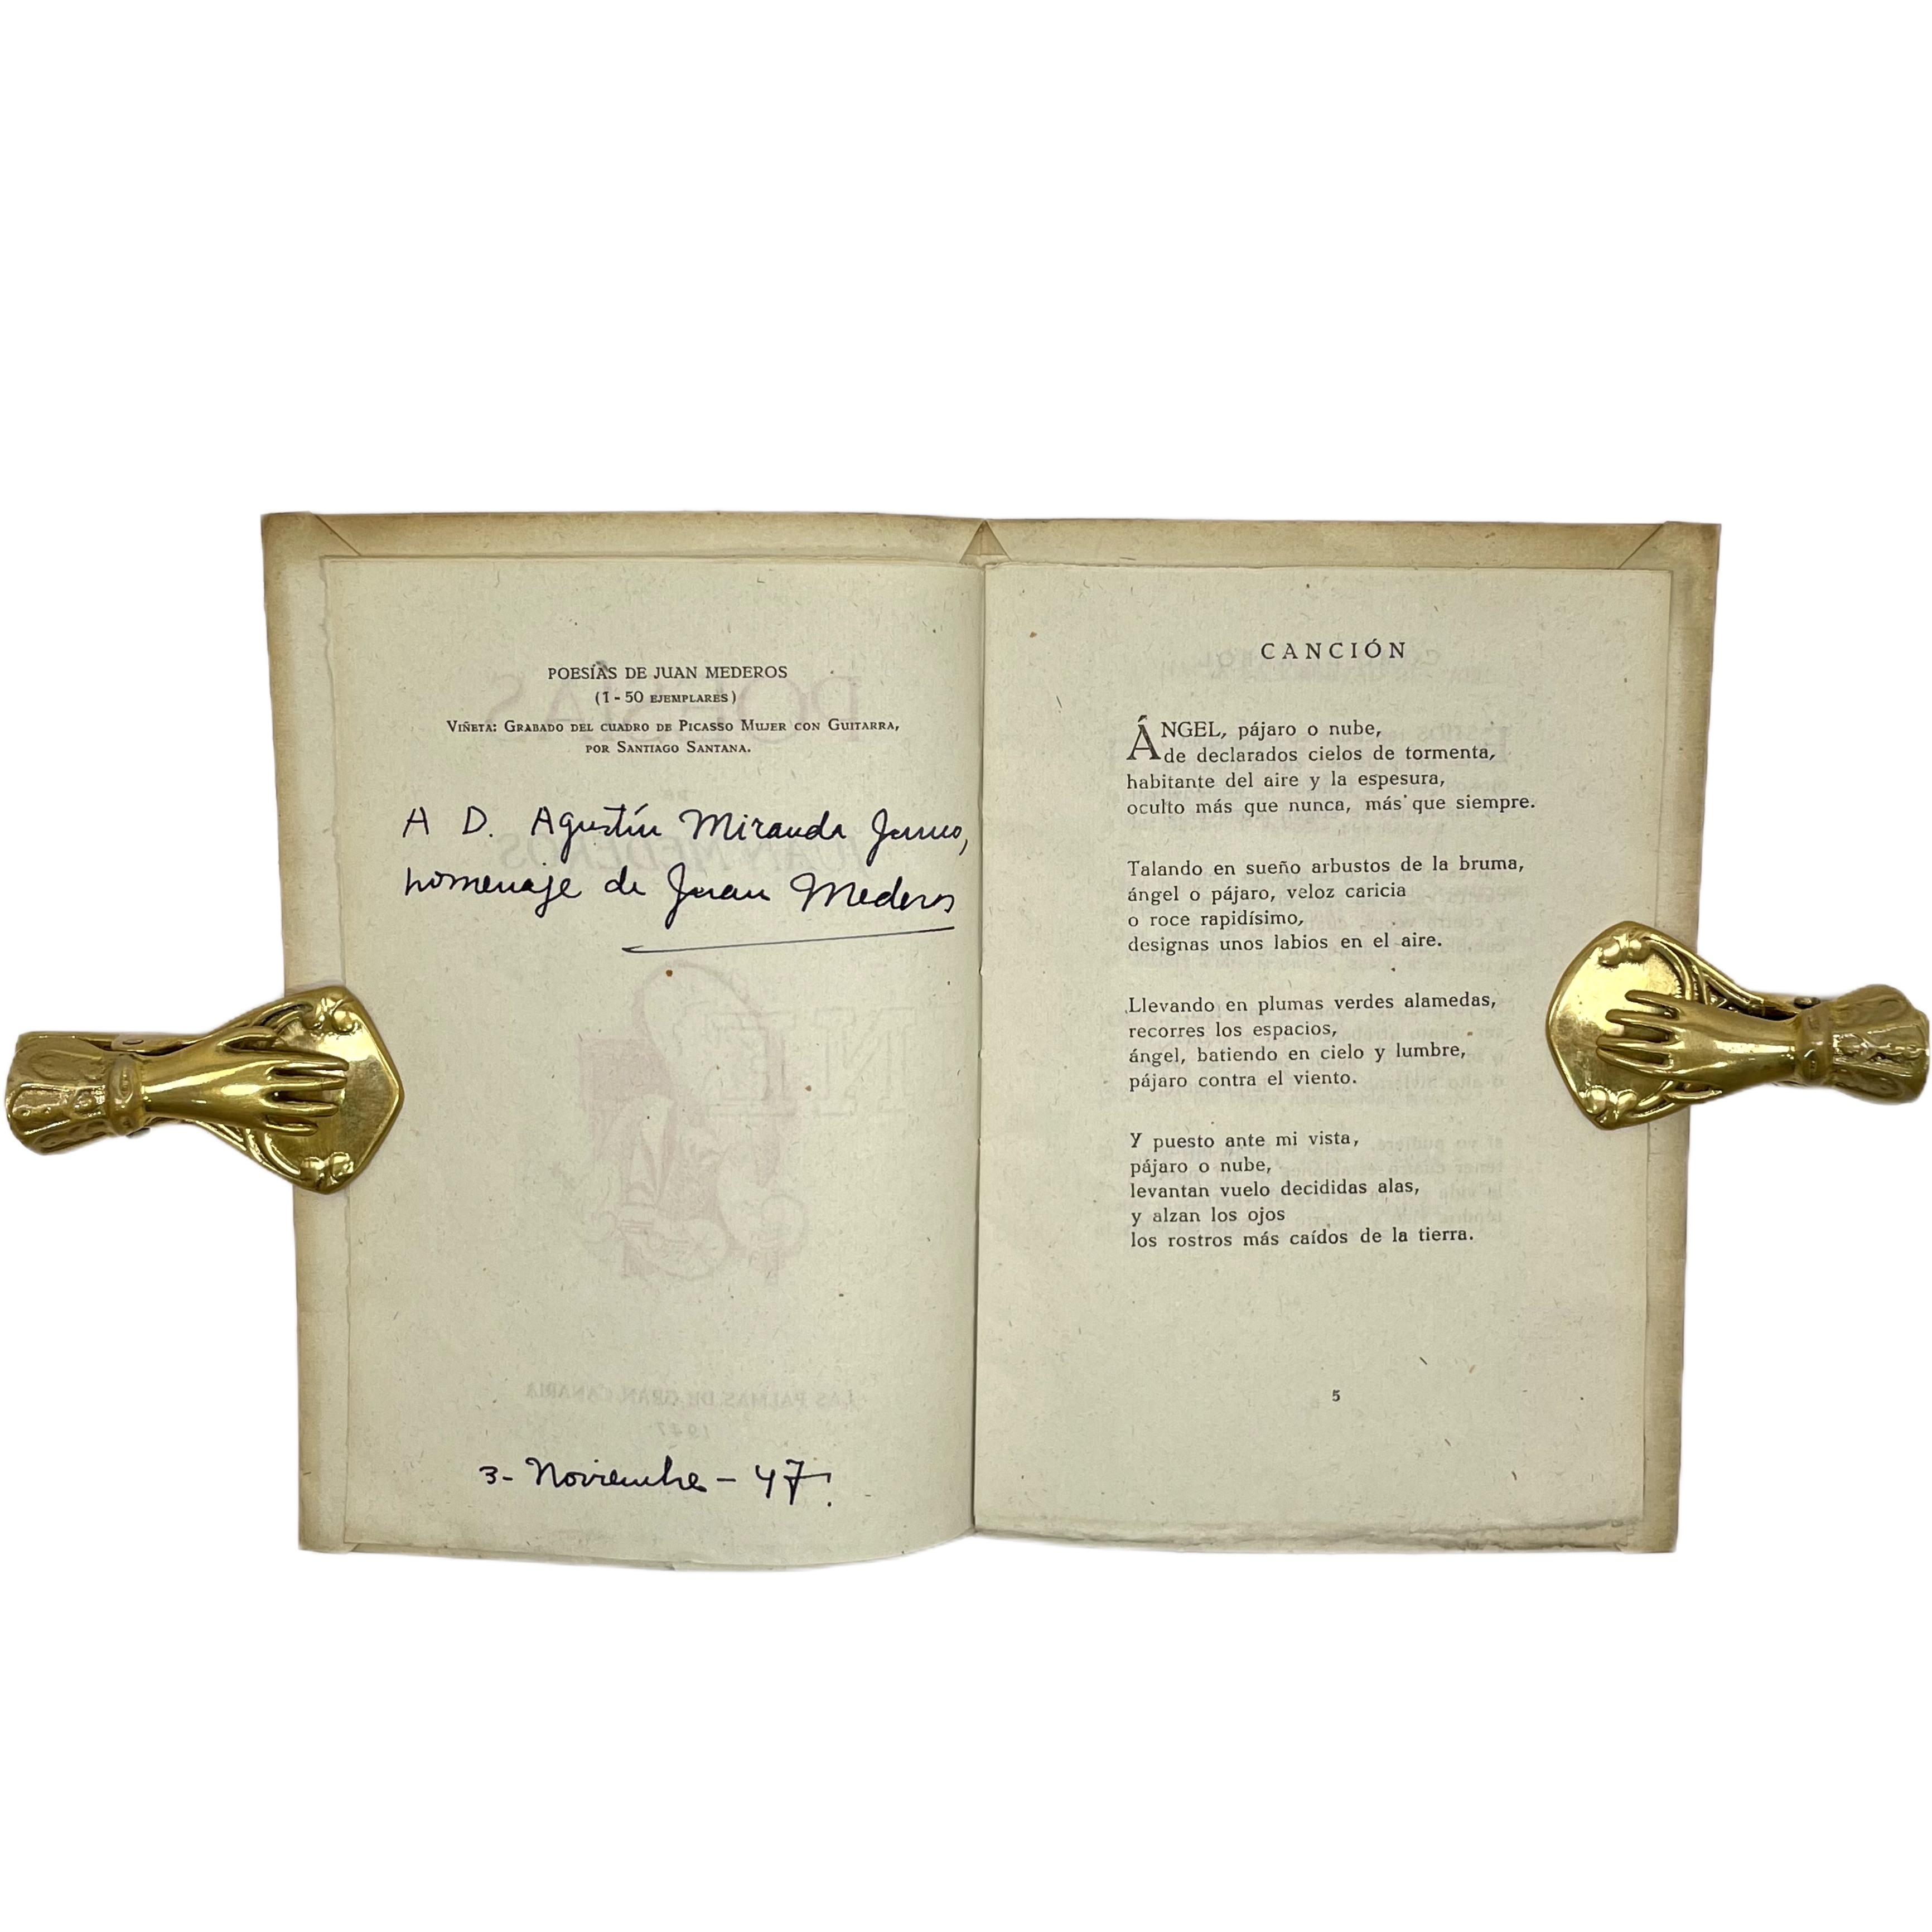 POESÍAS DE JUAN MEDEROS
(1 - 50 EJEMPLARES)
VIÑETA: GRABADO DEL CUADRO DE PICASSO MUJER CON GUITARRA,
POR SANTIAGO SANTANA.
A D. Agustín Miranda Junco,
homenaje de Juan Mederos
3 - Noviembre - 47.
CANCIÓN
ÁNGEL, pájaro o nube,
de declarados cielos de tormenta,
habitante del aire y la espesura,
oculto más que nunca, más que siempre.
Talando en sueño arbustos de la bruma,
ángel o pájaro, veloz caricia
o roce rapidísimo,
designas unos labios en el aire.
Llevando en plumas verdes alamedas,
recorres los espacios,
ángel, batiendo en cielo y lumbre,
pájaro contra el viento.
Y puesto ante mi vista,
pájaro o nube,
levantan vuelo decididas alas,
y alzan los ojos
los rostros más caídos de la tierra.
5